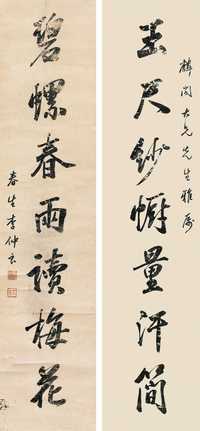 麟閣大兄先生雅屬
玉尺紗幮量汗簡
碧螺春雨讀梅花
春生李仲